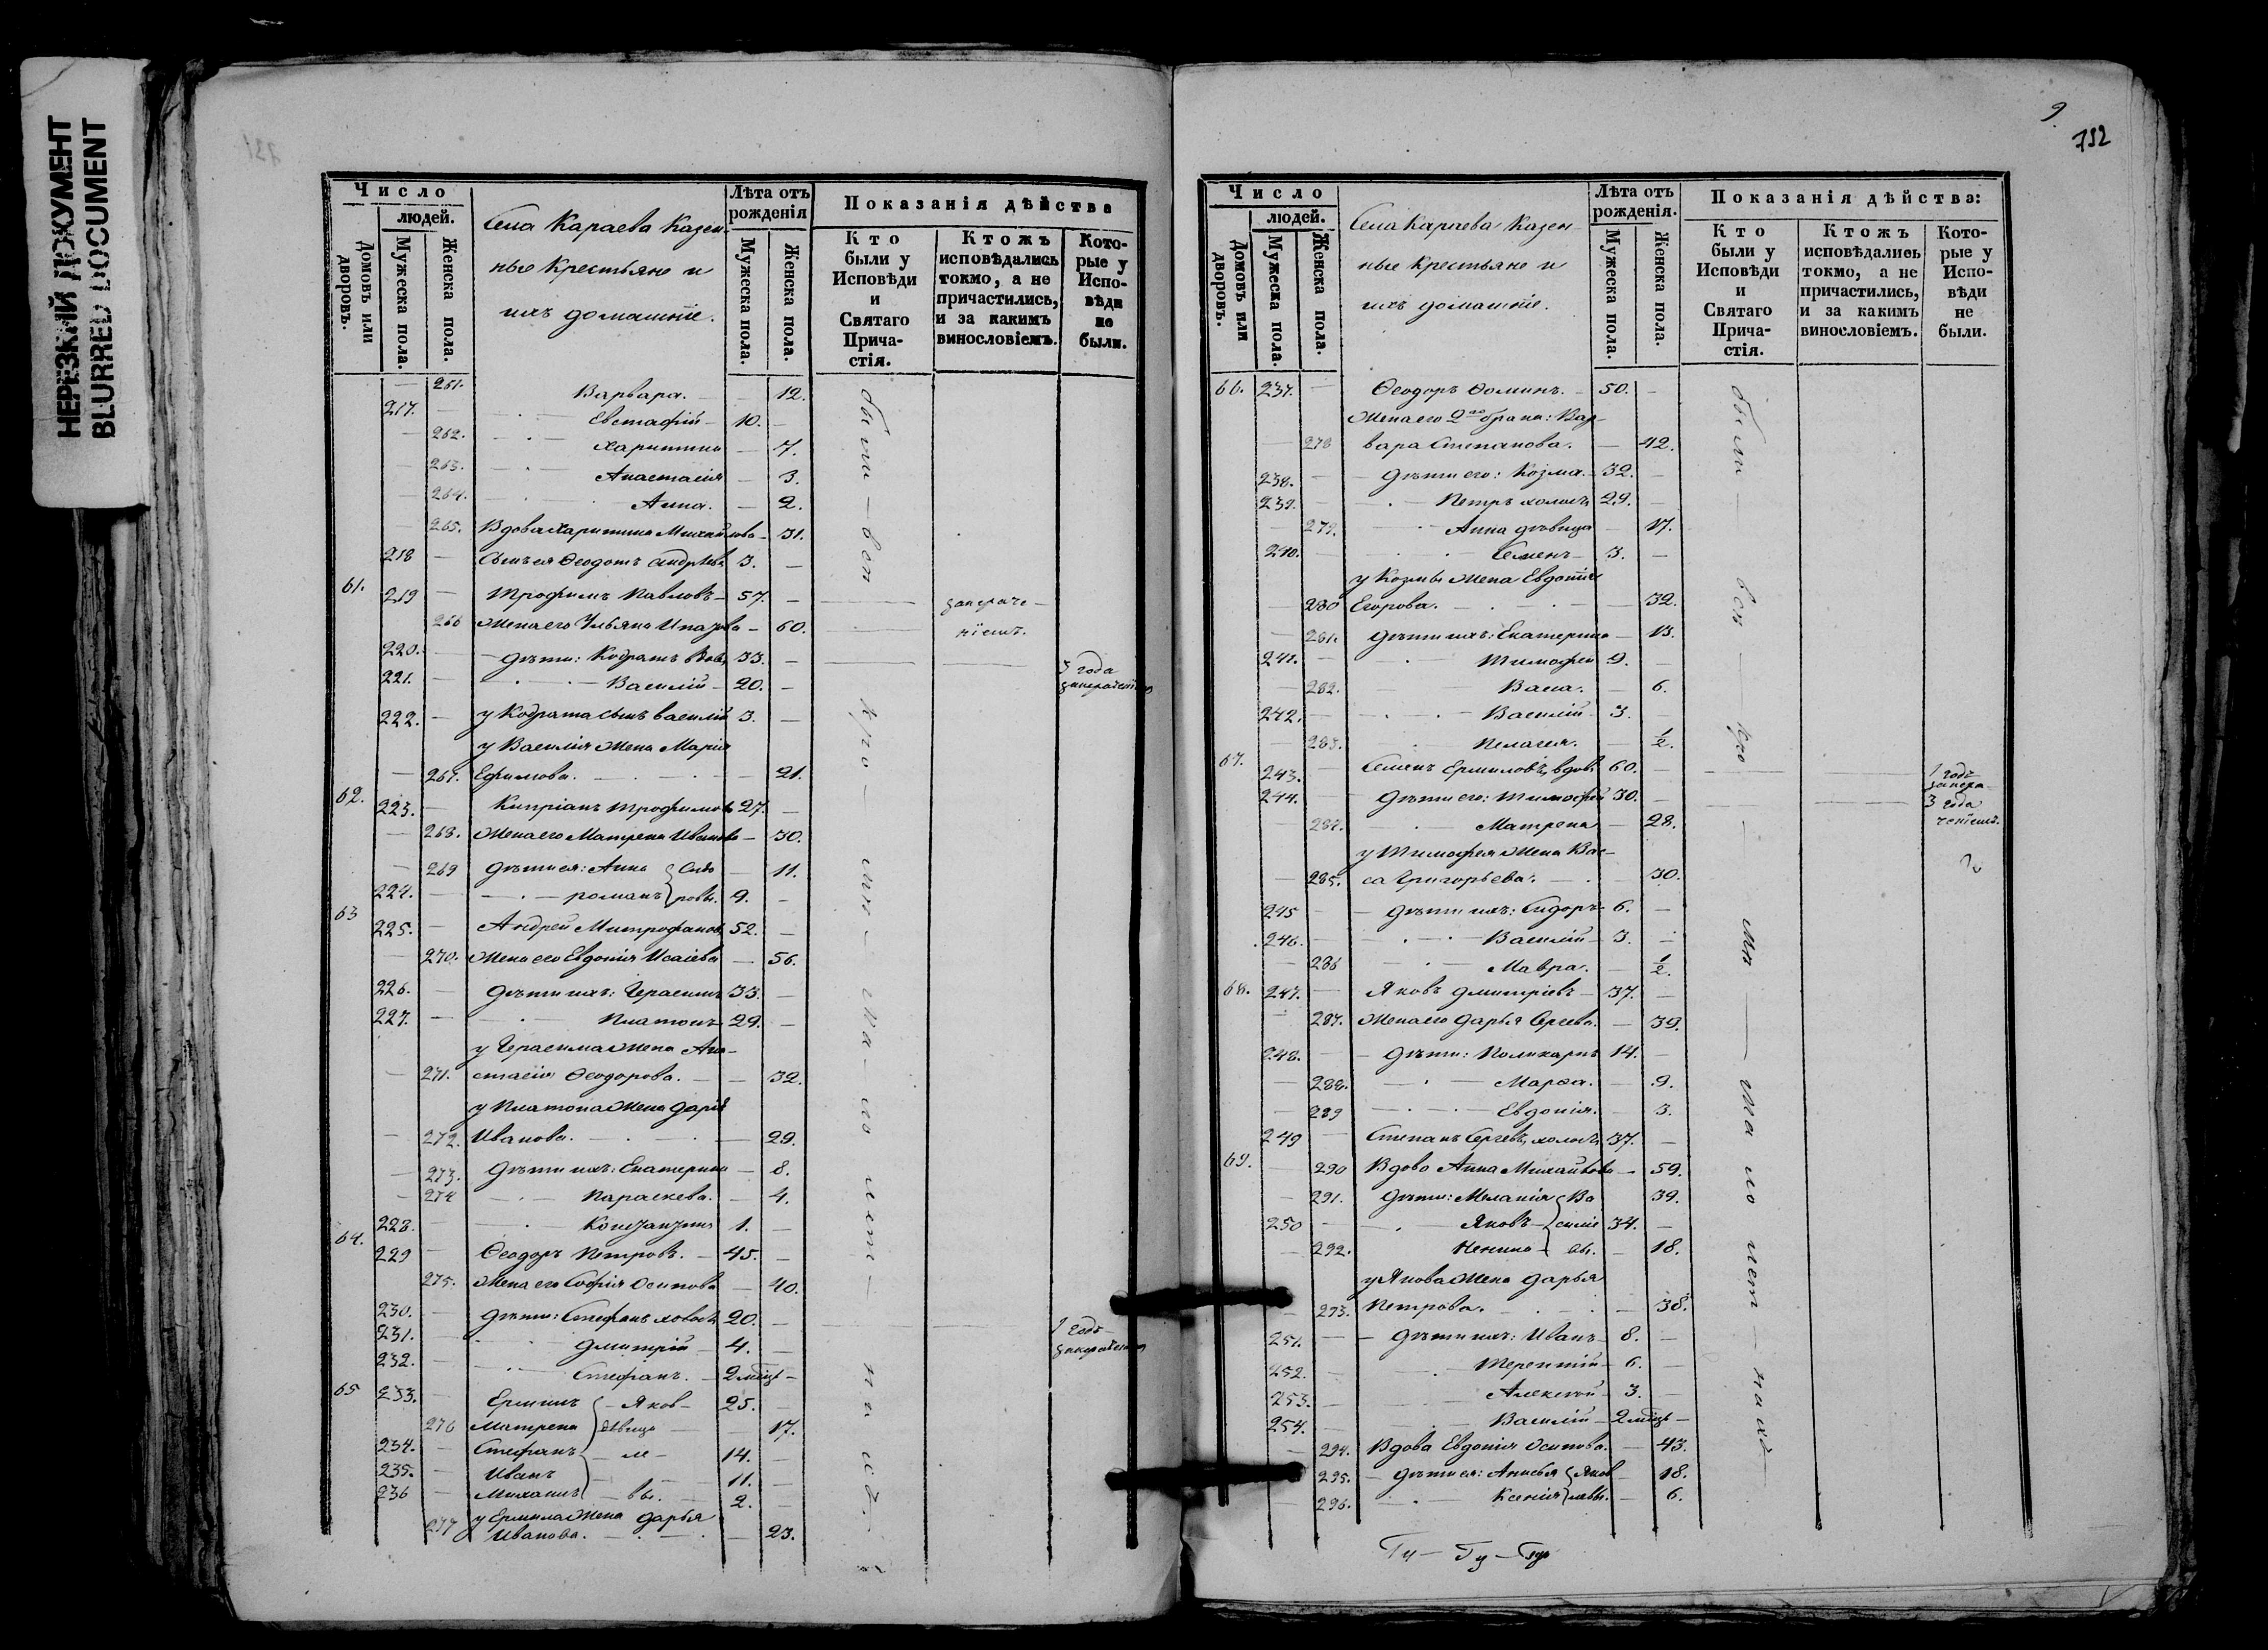 НЕРЕЗКИЙ ДОКУМЕНТ
BLURRED DOCUMENT
Число
людей.
Домовъ или дворовъ.
Мужеска пола.
Женска пола.
Села Караева Казен-
ные Крестьяне и
ихъ домашніе.
Лѣта отъ рожденія
Мужеска пола.
Женска пола.
Показанія дѣйства
Кто были у Исповѣди и Святаго Прича-стія.
Ктожъ исповѣдались токмо, а не причастились, и за какимъ винословіемъ.
Кото-рые у Испо-вѣди не были.
261. Варвара. 12.
217. Евстафій 10.
262. Харитина 7.
263. Анастасія 3.
264. Анна. 2.
265. Вдова Харитина Михайлова 31.
218 Сынъ ея Ѳеодотъ Андреевъ 3.
61. 219 Трофимъ Павловъ 57.
266 Жена его Ульяна 60.
220. Дѣти: Кодратъ вдов. 33. 3 года
221. Василій 20.
222. у Кодрата сынъ Василій 3.
у Василія Жена Марія
267. Ефимова. 21.
62. 223. Кипріанъ Трофимовъ 27.
268. Жена его Матрена Иванова 30.
269 Дѣти ея: Анна Сидо 11.
224. романъ ровы. 9.
63 225. Андрей Митрофановъ 52.
270. Жена его Евдокія Исаіева 56.
226. Дѣти ихъ: Герасимъ 33.
227. Платонъ 29.
у Герасима Жена Ана-
271. стасія Ѳеодорова. 32.
у Платона Жена Дарія
272. Иванова. 29.
273. Дѣти ихъ: Екатерина 8.
274 Параскева. 4.
228. Константинъ 1.
64. 229 Ѳеодоръ Петровъ. 45.
275. Жена его Софія Осипова 40.
230. Дѣти: Стефанъ холостъ 20. 1 годъ
231. Дмитрій 4.
232. Стефанъ. 2 мѣсц.
65 233. Ермилъ Яков 25.
276 Матрена дѣвица 17.
234. Стефанъ ле 14.
235. Иванъ 11.
236 Михаилъ вы. 2.
277 у Ермила Жена Дарья
Иванова. 23.
9.
752
Число
людей.
Домовъ или дворовъ.
Мужеска пола.
Женска пола.
Села Караева Казен-
ные Крестьяне и
ихъ домашніе.
Лѣта отъ рожденія.
Мужеска пола.
Женска пола.
Показанія дѣйства:
Кто были у Исповѣди и Святаго Прича-стія.
Ктожъ исповѣдались токмо, а не причастились, и за какимъ винословіемъ.
Кото-рые у Испо-вѣди не были.
66. 237. Ѳеодоръ Ѳоминъ. 50.
Жена его 2го брака: Вар-
278 вара Степанова. 42.
238. Дѣти его: Козма. 32.
239. Петръ холостъ 29.
279. Анна дѣвица 17.
240. Семенъ 3.
у Козмы Жена Евдокія
280 Егорова. 32.
281. Дѣти ихъ: Екатерина 13.
241. Тимофей 9.
282. Васа. 6.
242. Василій 3.
283. Пелагея. 1/2.
67. 243. Семенъ Ермиловъ, вдов. 60. 1 годъ
244. Дѣти его: Тимофей 30. 3 года
284. Матрена 28.
у Тимофея Жена Вас-
285. са Григорьева. 30.
245 Дѣти ихъ: Сидоръ 6.
246. Василій 3.
286 Мавра. 1/2.
68. 247. Яковъ Дмитріевъ 37.
287. Жена его Дарья Сергеева. 39.
248. Дѣти: Поликарпъ 14.
288. Марѳа. 9.
289 Евдокія. 3.
249 Степанъ Сергеевъ, холостъ 37.
69. 290 Вдова Анна Михайлова 59.
291. Дѣти: Меланія Ва 39.
250 Яковъ силіе 34.
292. Ненила вы. 18.
у Якова Жена Дарья
293. Петрова. 38.
251. Дѣти ихъ: Иванъ 8.
252. Терентій 6.
253. Алексѣй 3.
254. Василій 2 мѣсц.
294. Вдова Евдокія Осипова. 43.
295. Дѣти ея: Анисья Яков 18.
296. Ксенія левы. 6.